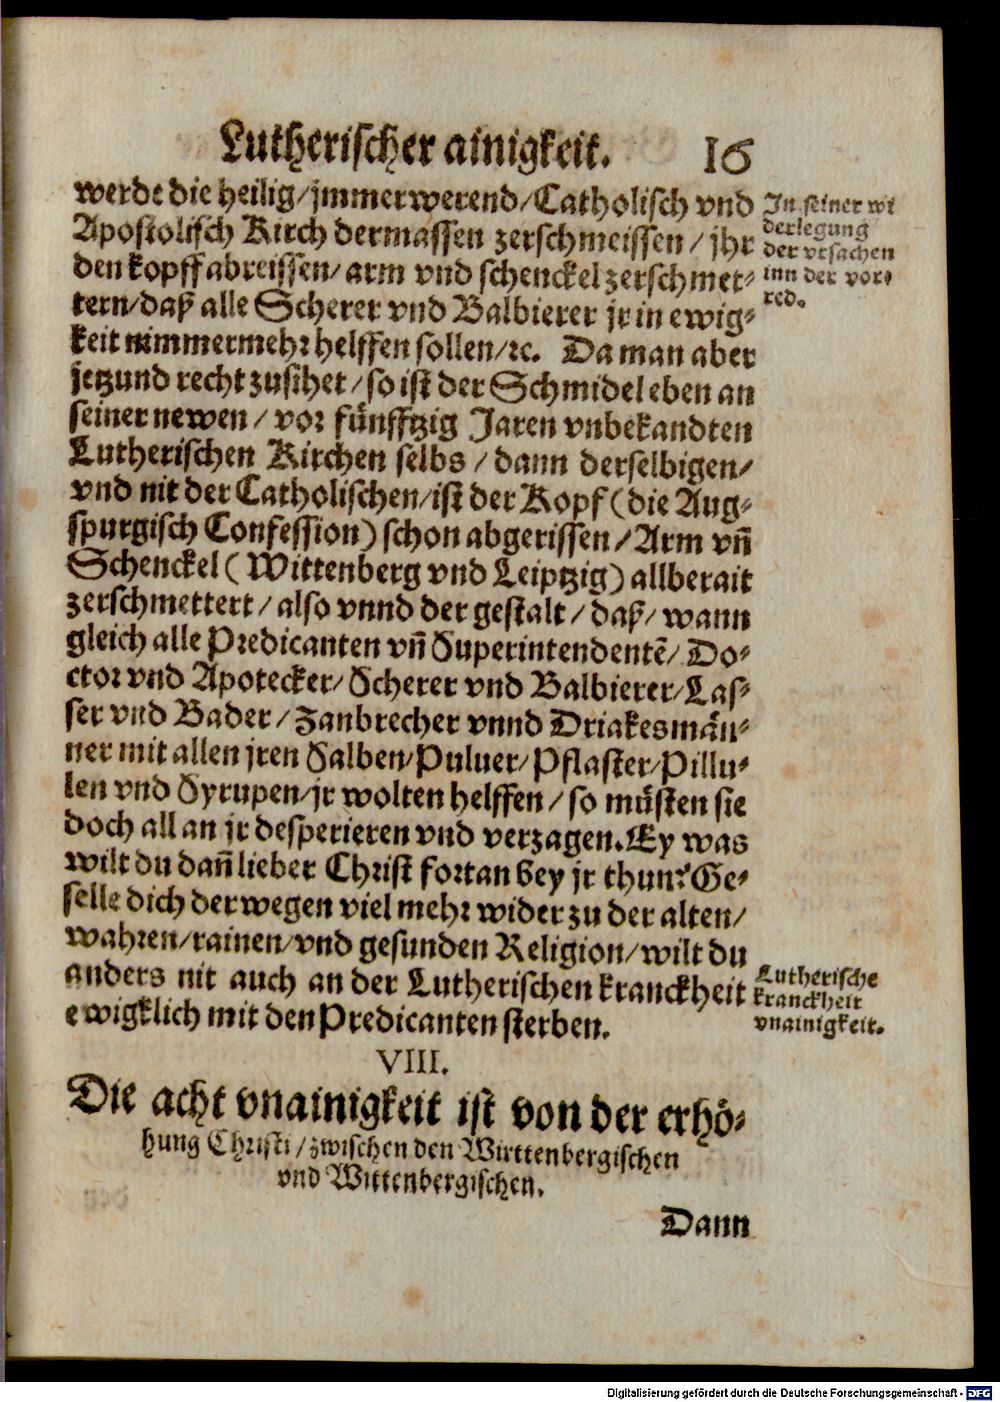 Lutherischer ainigkeit. 16
werde die heilig/ jmmerwerend/ Catholisch vnd
Apostolisch Kirch dermassen zerschmeissen/ jhr
den kopff abreissen/ arm vnd schenckel zerschmet-
tern/ daß alle Scherer vnd Balbierer jr in ewig-
keit nimmermehr helffen sollen/ ꝛc. Da man aber
jetzund recht zusihet/ so ist der Schmidel eben an
seiner newen/ vor fünfftzig Jaren vnbekandten
Lutherischen Kirchen selbs/ dann derselbigen/
vnd nit der Catholischen/ ist der Kopf (die Aug-
spurgisch Confession) schon abgerissen/ Arm vñ
Schenckel (Wittenberg vnd Leiptzig) allberait
zerschmettert/ also vnnd der gestalt/ daß/ wann
gleich alle Predicanten vñ Superintendentẽ/ Do-
ctor vnd Apotecker/ Scherer vnd Balbierer/ Las-
ser vnd Bader/ Zanbrecher vnnd Driakesmän-
ner mit allen jren Salben/ Puluer/ Pflaster/ Pillu-
len vnd Syrupen/ jr wolten helffen/ so müsten sie
doch all an jr desperieren vnd verzagen. Ey was
wilt du dañ lieber Christ fortan bey jr thun? Ge-
selle dich derwegen viel mehr wider zu der alten/
wahren/ rainen/ vnd gesunden Religion/ wilt du
anders nit auch an der Lutherischen kranckheit
ewigklich mit den Predicanten sterben.
In seiner wi
derlegung
der vrsachen
inn der vor-
red.
Lutherische
kranckheit
vnainigkeit.
VIII.
Die acht vnainigkeit ist von der erhö-
hung Christi/ zwischen den Wirttenbergischen
vnd Wittenbergischen.
Dann
Digitalisierung gefördert durch die Deutsche Forschungsgemeinschaft - DFG